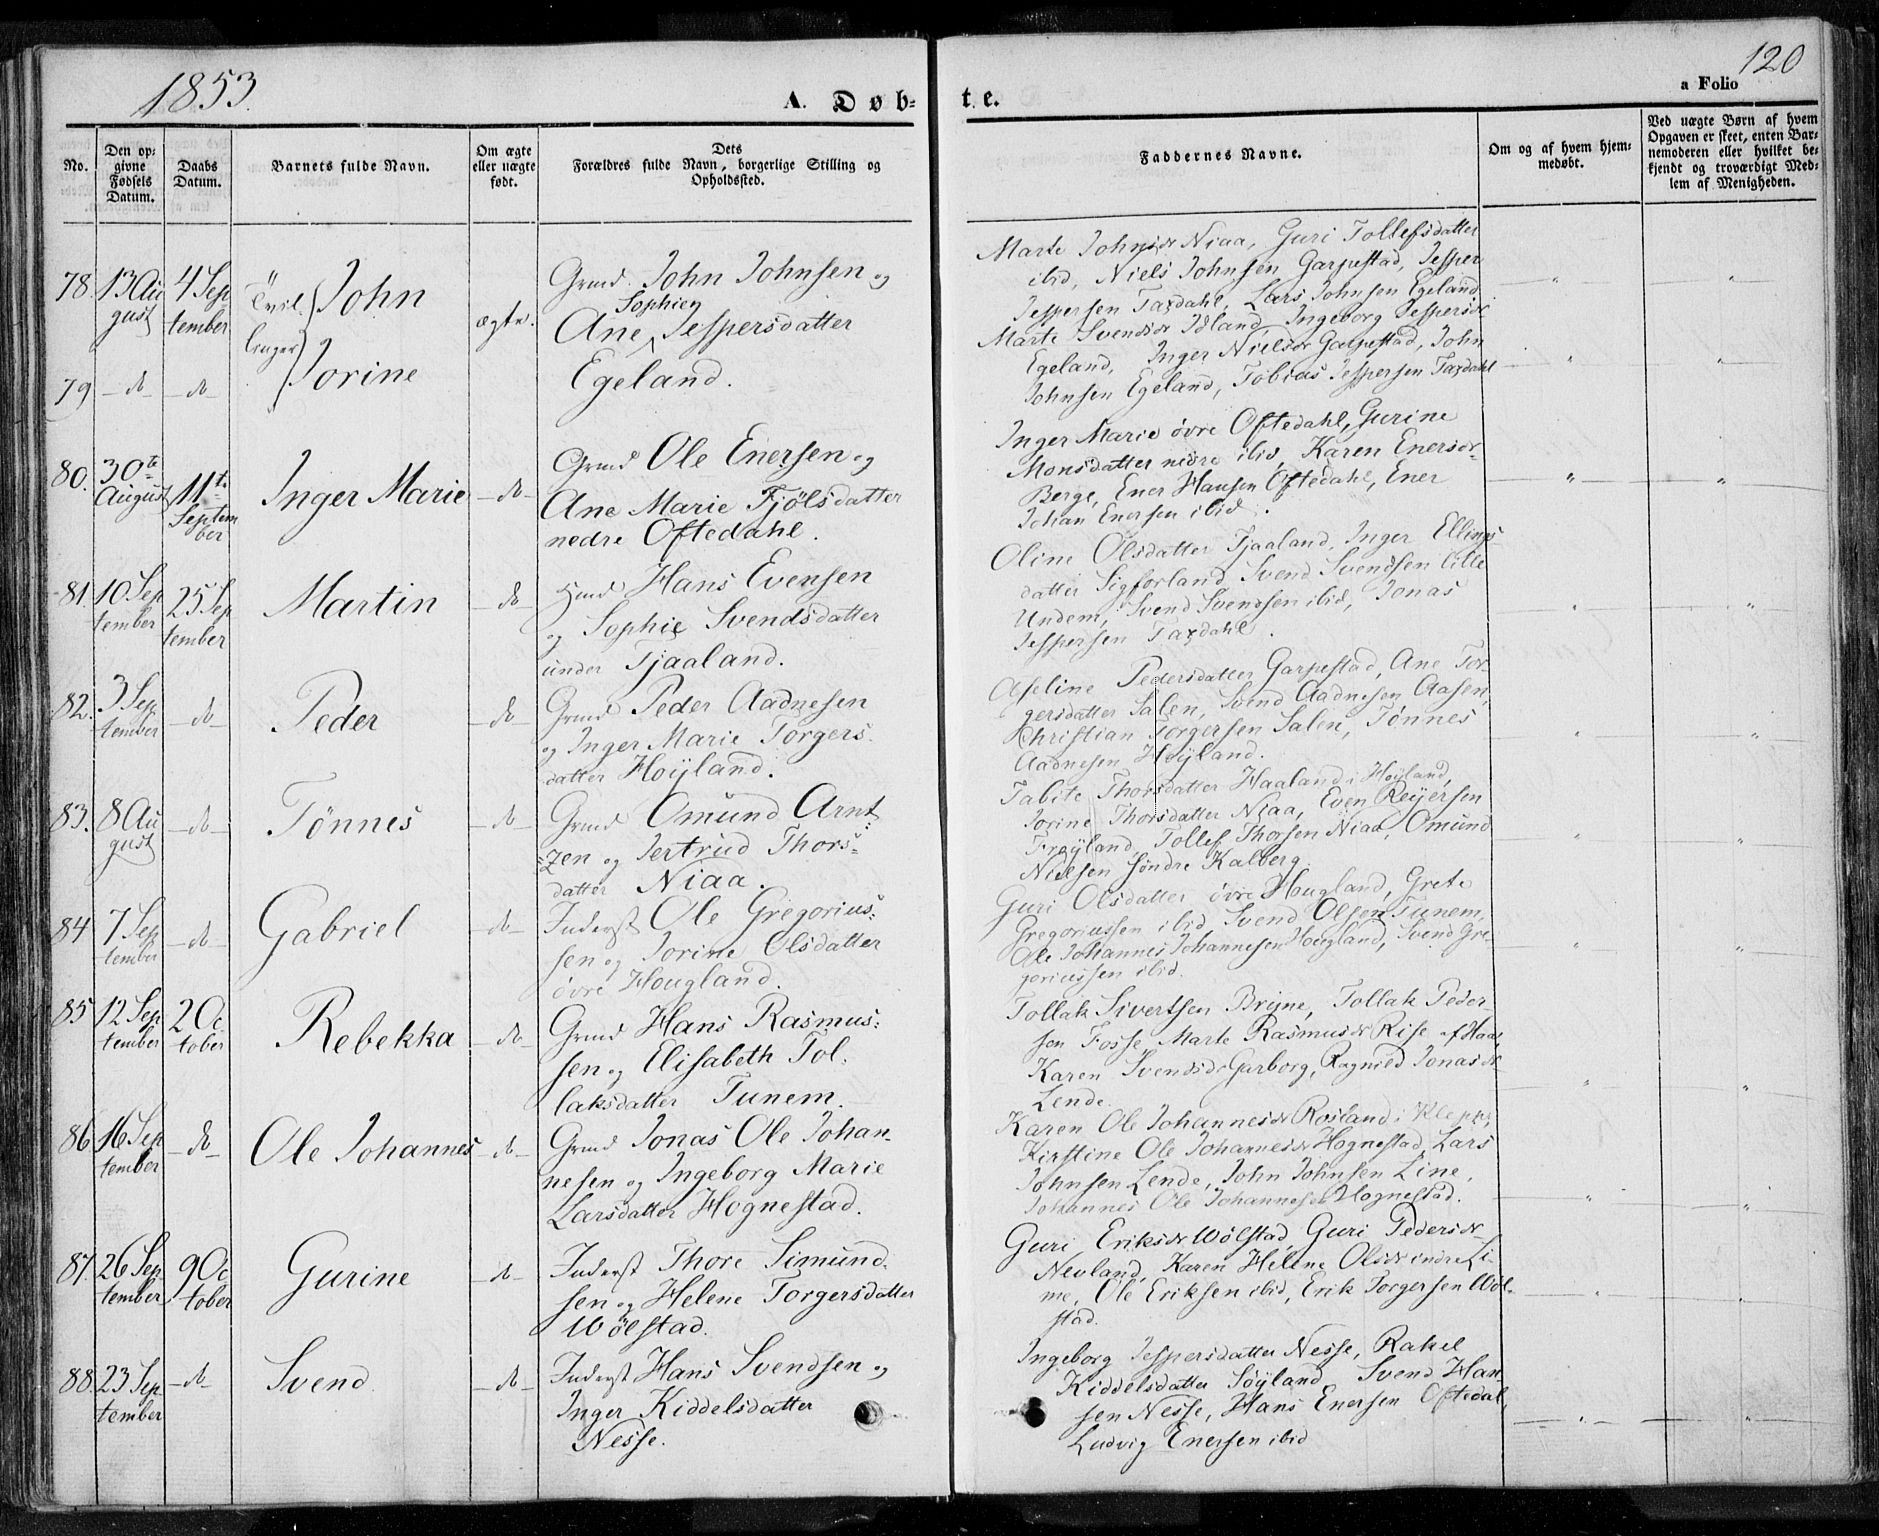 1853.
A. Døb-
te.
120
a Folio
No.
Den op-
givne
Fødsels
Datum.
Daabs
Datum.
Barnets fulde Navn.
Om ægte
eller uægte
født.
Dets
Forældres fulde Navn, borgerlige Stilling og
Opholdssted.
Faddernes Navne.
Om og af hvem hjem-
medøbt.
Ved uægte Børn af hvem
Opgaven er skeet, enten Bar-
nemoderen eller hvilket be-
kjendt og troværdigt Med-
lem af Menigheden.
78. 13 Au
gust
4 Sep
tember
Tvil-
linger
John
ægte.
Grmd. John Johnsen og
Sophie
Ane Jespersdatter
Egeland.
Marte Johnsdr Niaa, Guri Tollefsdatter
ibid, Niels Johnsen Garpestad, Jesper
Jespersen Taxdahl, Lars Johnsen Egeland
79 - do - - do -
Jorine
Marte Svendsdr Idland, Ingeborg Jespersdr
Egeland, Inger Nielsdr Garpestad, John
Johnsen Egeland, Tobias Jespersen Taxdahl
80. 30te
August
11te
Septem
ber
Inger Marie
- do -
Grmd Ole Enersen og
Ane Marie Fjölsdatter
nedre Oftedahl.
Inger Marie övre Oftedahl, Gurine
Monsdatter nedre ibid, Karen Enersdr
Berge, Ener Hansen Oftedahl, Ener
Johan Enersen ibid.
81. 10 Sep
tember
25 Sep
tember
Martin
- do -
Hmd Hans Evensen
og Sophie Svendsdatter
under Tjaaland.
Oline Olsdatter Tjaaland, Inger Ellings-
datter Sigforland, Svend Svendsen lille
Undem, Svend Svendsen ibid, Jonas
Jespersen Taxdahl.
82. 3 Sep
tember
- do -
Peder
- do -
Grmd Peder Aadnesen
og Inger Marie Torgers
datter Hoÿland.
Aseline Pedersdatter Garpestad, Ane Tor
gersdatter Salen, Svend Aadnesen Aasen,
Christian Torgersen Salen, Tönnes
Aadnesen Höÿland.
83. 8 Au
gust
- do -
Tønnes
- do -
Grmd Omund Arnt
zen og Jertrud Thors-
datter Niaa.
Tabite Thorsdatter Haaland i Høÿland,
Jorine Thorsdatter Niaa, Even Reÿersen
Frøÿland, Tollef Thorsen Niaa, Omund
Nielsen søndre Kalberg.
84 7 Sep
tember
- do -
Gabriel
- do -
Inderst Ole Gregorius-
sen og Jorine Olsdatter
övre Hougland.
Guri Olsdatter övre Hougland, Grete
Gregoriussen ibid Svend Olsen Tunem,
Ole Johannes Johannesen Hougland, Svend Gre-
goriussen ibid.
85 12 Sep
tember
2 Oc
tober
Rebekka
- do -
Grmd Hans Rasmus-
sen og Elisabeth Tol-
laksdatter Tunem.
Tollak Sivertsen Brÿne, Tollak Peder
sen Fosse Marte Rasmusdr Rise af Haa,
Karen Svendsdr Garborg, Ragnild Jonasdr
Lende.
86 16 Sep
tember
- do -
Ole Johannes
- do -
Grmd Jonas Ole Johan-
nesen og Ingeborg Marie
Larsdatter Hognestad.
Karen Ole Johannesdr Rosland i Klepp,
Kirstine Ole Johannesdr Hognestad, Lars
Johnsen Lende, John Johnsen Line,
Johannes Ole Johannesen Hognestad.
87. 26 Sep
tember
9 Oc
tober
Gurine
- do -
Inderst Thore Simund-
sen og Helene Torgersdatter
Wölstad.
Guri Eriksdr Wölstad, Guri Pedersdr
Nevland, Karen Helene Olsdr indre Li-
me, Ole Eriksen ibid, Erik Torgersen Wöl-
stad.
88 23 Sep
tember
- do -
Svend
- do -
Inderst Hans Svendsen og
Inger Kiddelsdatter
Nesse.
Ingeborg Jespersdatter Nesse, Rakel
Kiddelsdatter Söÿland Svend Han
sen Nesse, Hans Enersen Oftedal,
Ludvig Enersen ibid